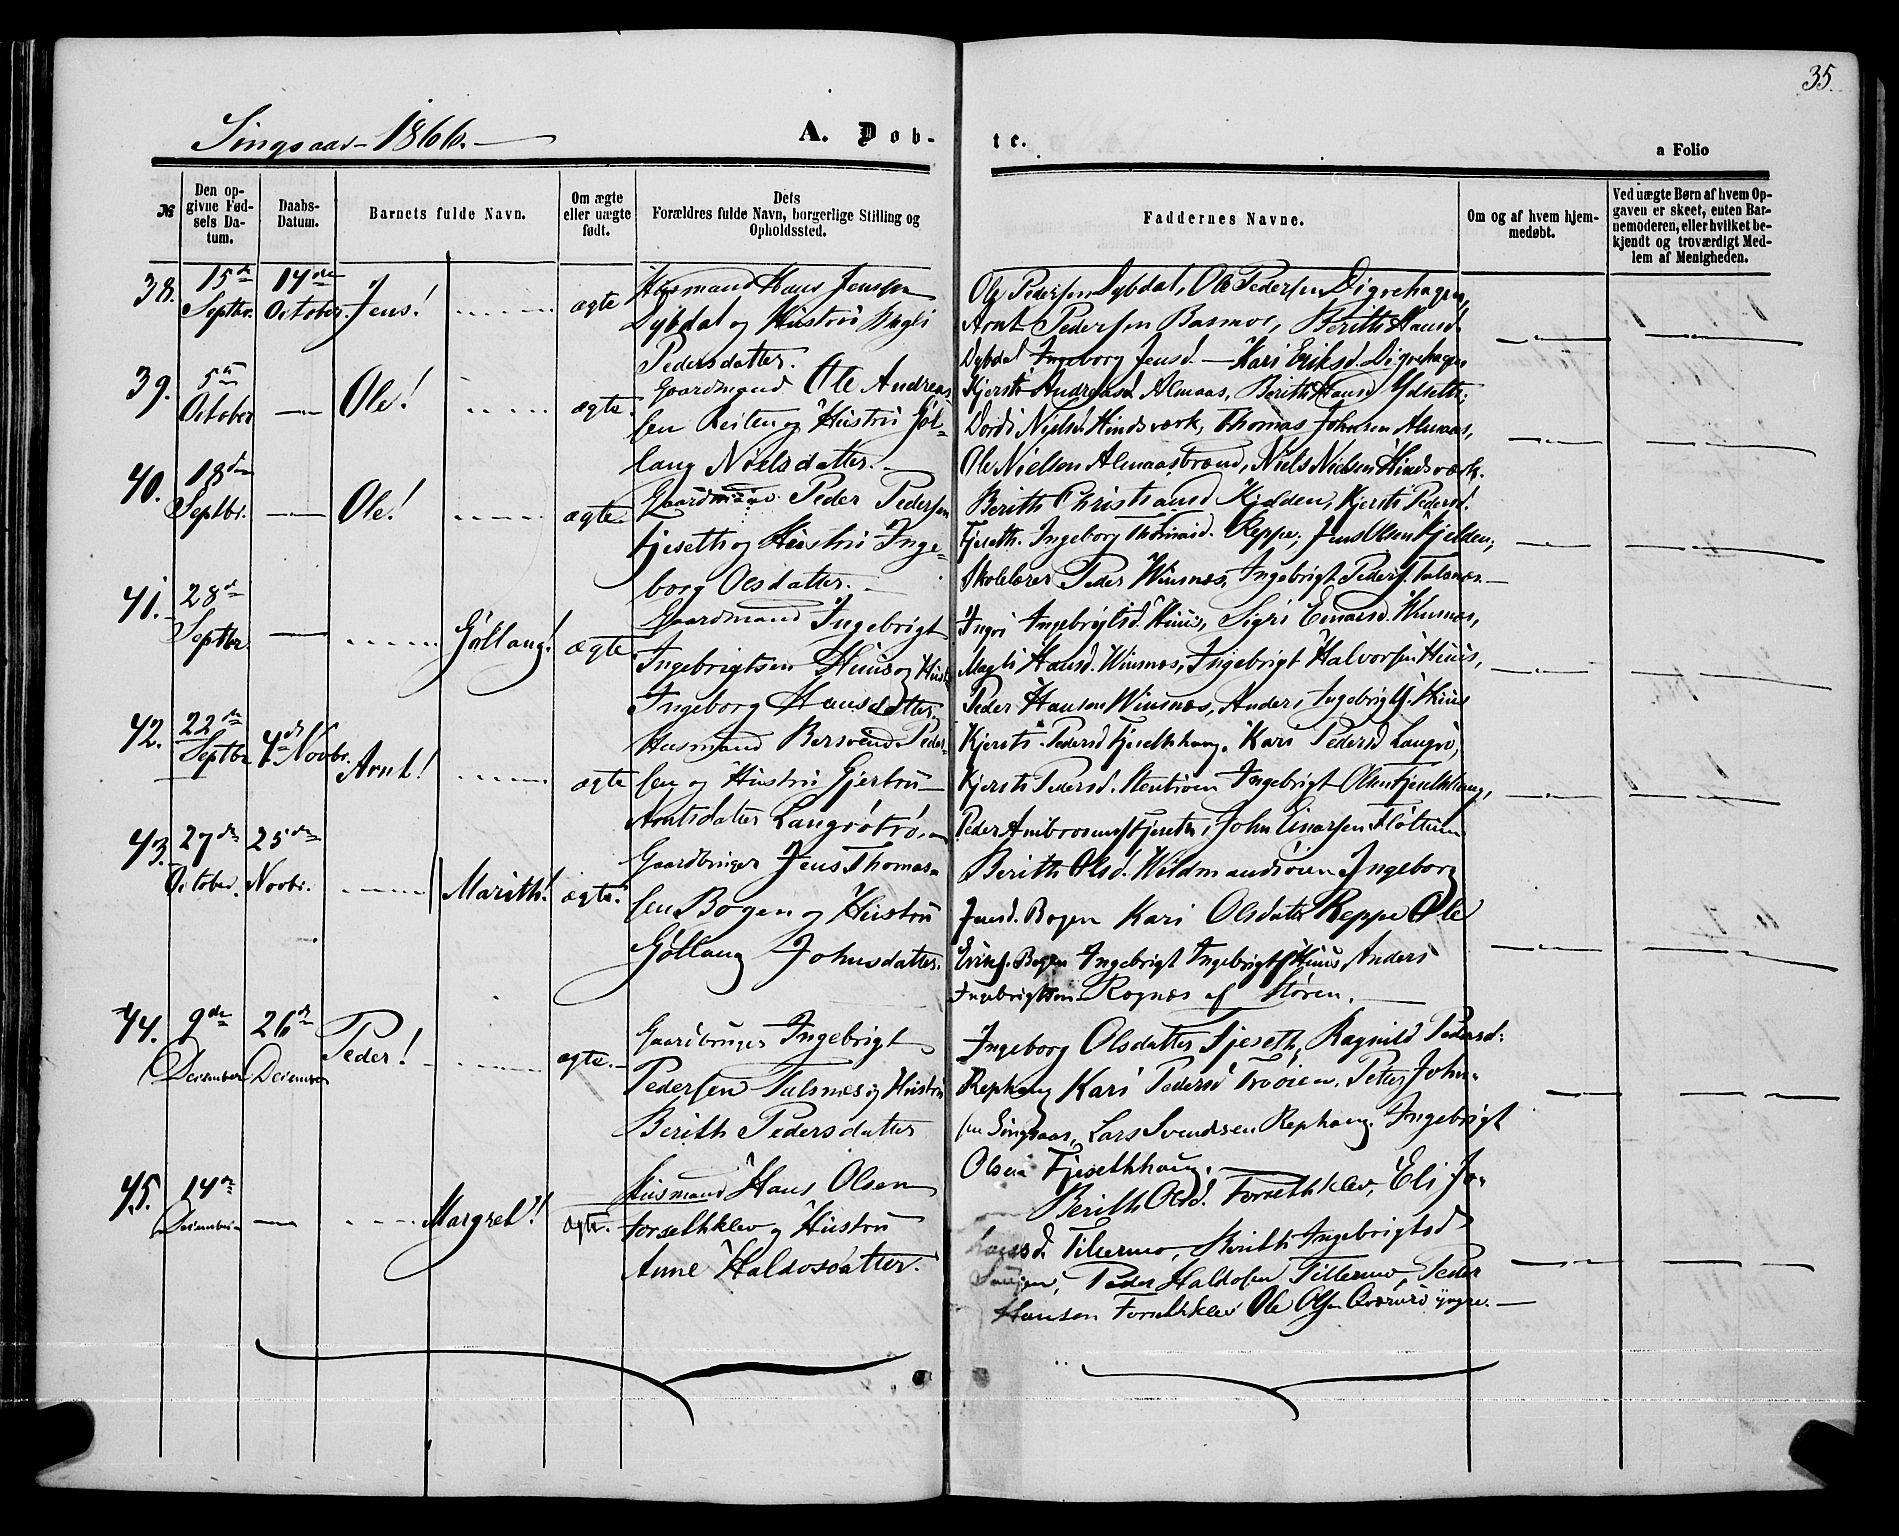 35.
Singsaas 1866.
A. Døb-
te.
a Folio
№
Den op-
givne Fød-
sels Da-
tum.
Daabs-
Datum.
Barnets fulde Navn.
Om ægte
eller uægte
født.
Dets
Forældres fulde Navn, borgerlige Stilling og
Opholdssted.
Faddernes Navne.
Om og af hvem hjem-
medøbt.
Ved uægte Børn af hvem Op-
gaven er skeet, enten Bar-
nemoderen, eller hvilket be-
kjendt og troværdigt Med-
lem af Menigheden.
38. 15de Septbr. 14de October Jens! ægte
Husmand Hans Jensen
Dybdal og Hustru
Pedersdatter.
Ole Pedersen Dybdal, Ole Pedersen Digrehagen,
Arnt Pedersen Basmoe, Berith Hansd.
Dybdal Ingeborg Jensd. — Kari Eriksd. Digrehagen
39. 5te October — Ole! ægte.
Gaardmand Ole Andreas
sen Reiten og Hustru Gøl-
laug Nielsdatter. —
Kjersti Andreasd. Almaas, Berith Hansd Ydsette,
Dordi Nielsd. Hindsværk, Thomas Johnsen Almaas,
Ole Nielsen Almaasbrænd, Niels Nielsen Hindsværk.
40. 18de Septbr. — Ole! ægte.
Gaardmand Peder Pedersen
Fjeseth og Hustru Inge-
borg Olsdatter. —
Berith Christiansd. Kjelden, Kjersti Pedersd.
Fjeseth. Ingeborg Thomasd. Reppe, Jens Olsen Kjelden,
Skolelærer Peder Winsnes, Ingebrigt Peders. Talsnes. —
41. 28de Septbr — Gøllaug! ægte
Gaardmand Ingebrigt
Ingebrigtsen Huus og Hustru
Ingeborg Hansdatter.
Ingri Ingebrigtsd. Huus, Sigri Einarsd. Winsnes,
Magli Hansd. Winsnes, Ingebrigt Halvorsen Huus,
Peder Hansen Winsnes, Anders Ingebrigts. Huus
42. 22de Septbr 4de Novbr. Arnt! ægte
Husmand Bersvend Peder-
sen og Hustru Gjertru
Arntsdatter Langrøtrø. —
Kjersti Pedersd Fjesethhaug. Kari Pedersd Langrø,
Kjersti Pedersd. Stentrøen Ingebrigt Olsen Fjesethhaug,
Peder Ambrosens. Fjeseth, John Einarsen Fløttum
43. 27de October. 25de Novbr. Marith! ægte.
Gaardbruger Jens Thomas-
sen Bogen og Hustru
Gøllaug Johnsdatter.
Berith Olsd. Weldmandsøien Ingeborg
Jensd. Bogen Kari Olsdatter Reppe Ole
Eriks. Bogen Ingebrigt Ingebrigts. Huus, Anders
Ingebrigtsen Rognæs af Støren. —
44. 9de December 26de December Peder! ægte. —
Gaardbruger Ingebrigt
Pedersen Talsnes og Hustru
Berith Pedersdatter
Ingeborg Olsdatter Fjeseth, Ragnild Pedersd.
Rephaug Kari Pedersd Trøøien. Petter John-
sen Singsaas, Lars Svendsen Rephaug. Ingebrigt
Olsen Fjesethhaug. —
45. 14de December — Margret! ægte.
Husmand Hans Olsen
Forsethklev og Hustru
Anne Haldosdatter.
Berith Olsd. Forsethklev, Eli Jo-
hansd. Tillermo, Berith Ingebrigtsd
Peder Haldosen Tillermo, Peder
Hansen Forsethklev Ole Olsen yngre. —